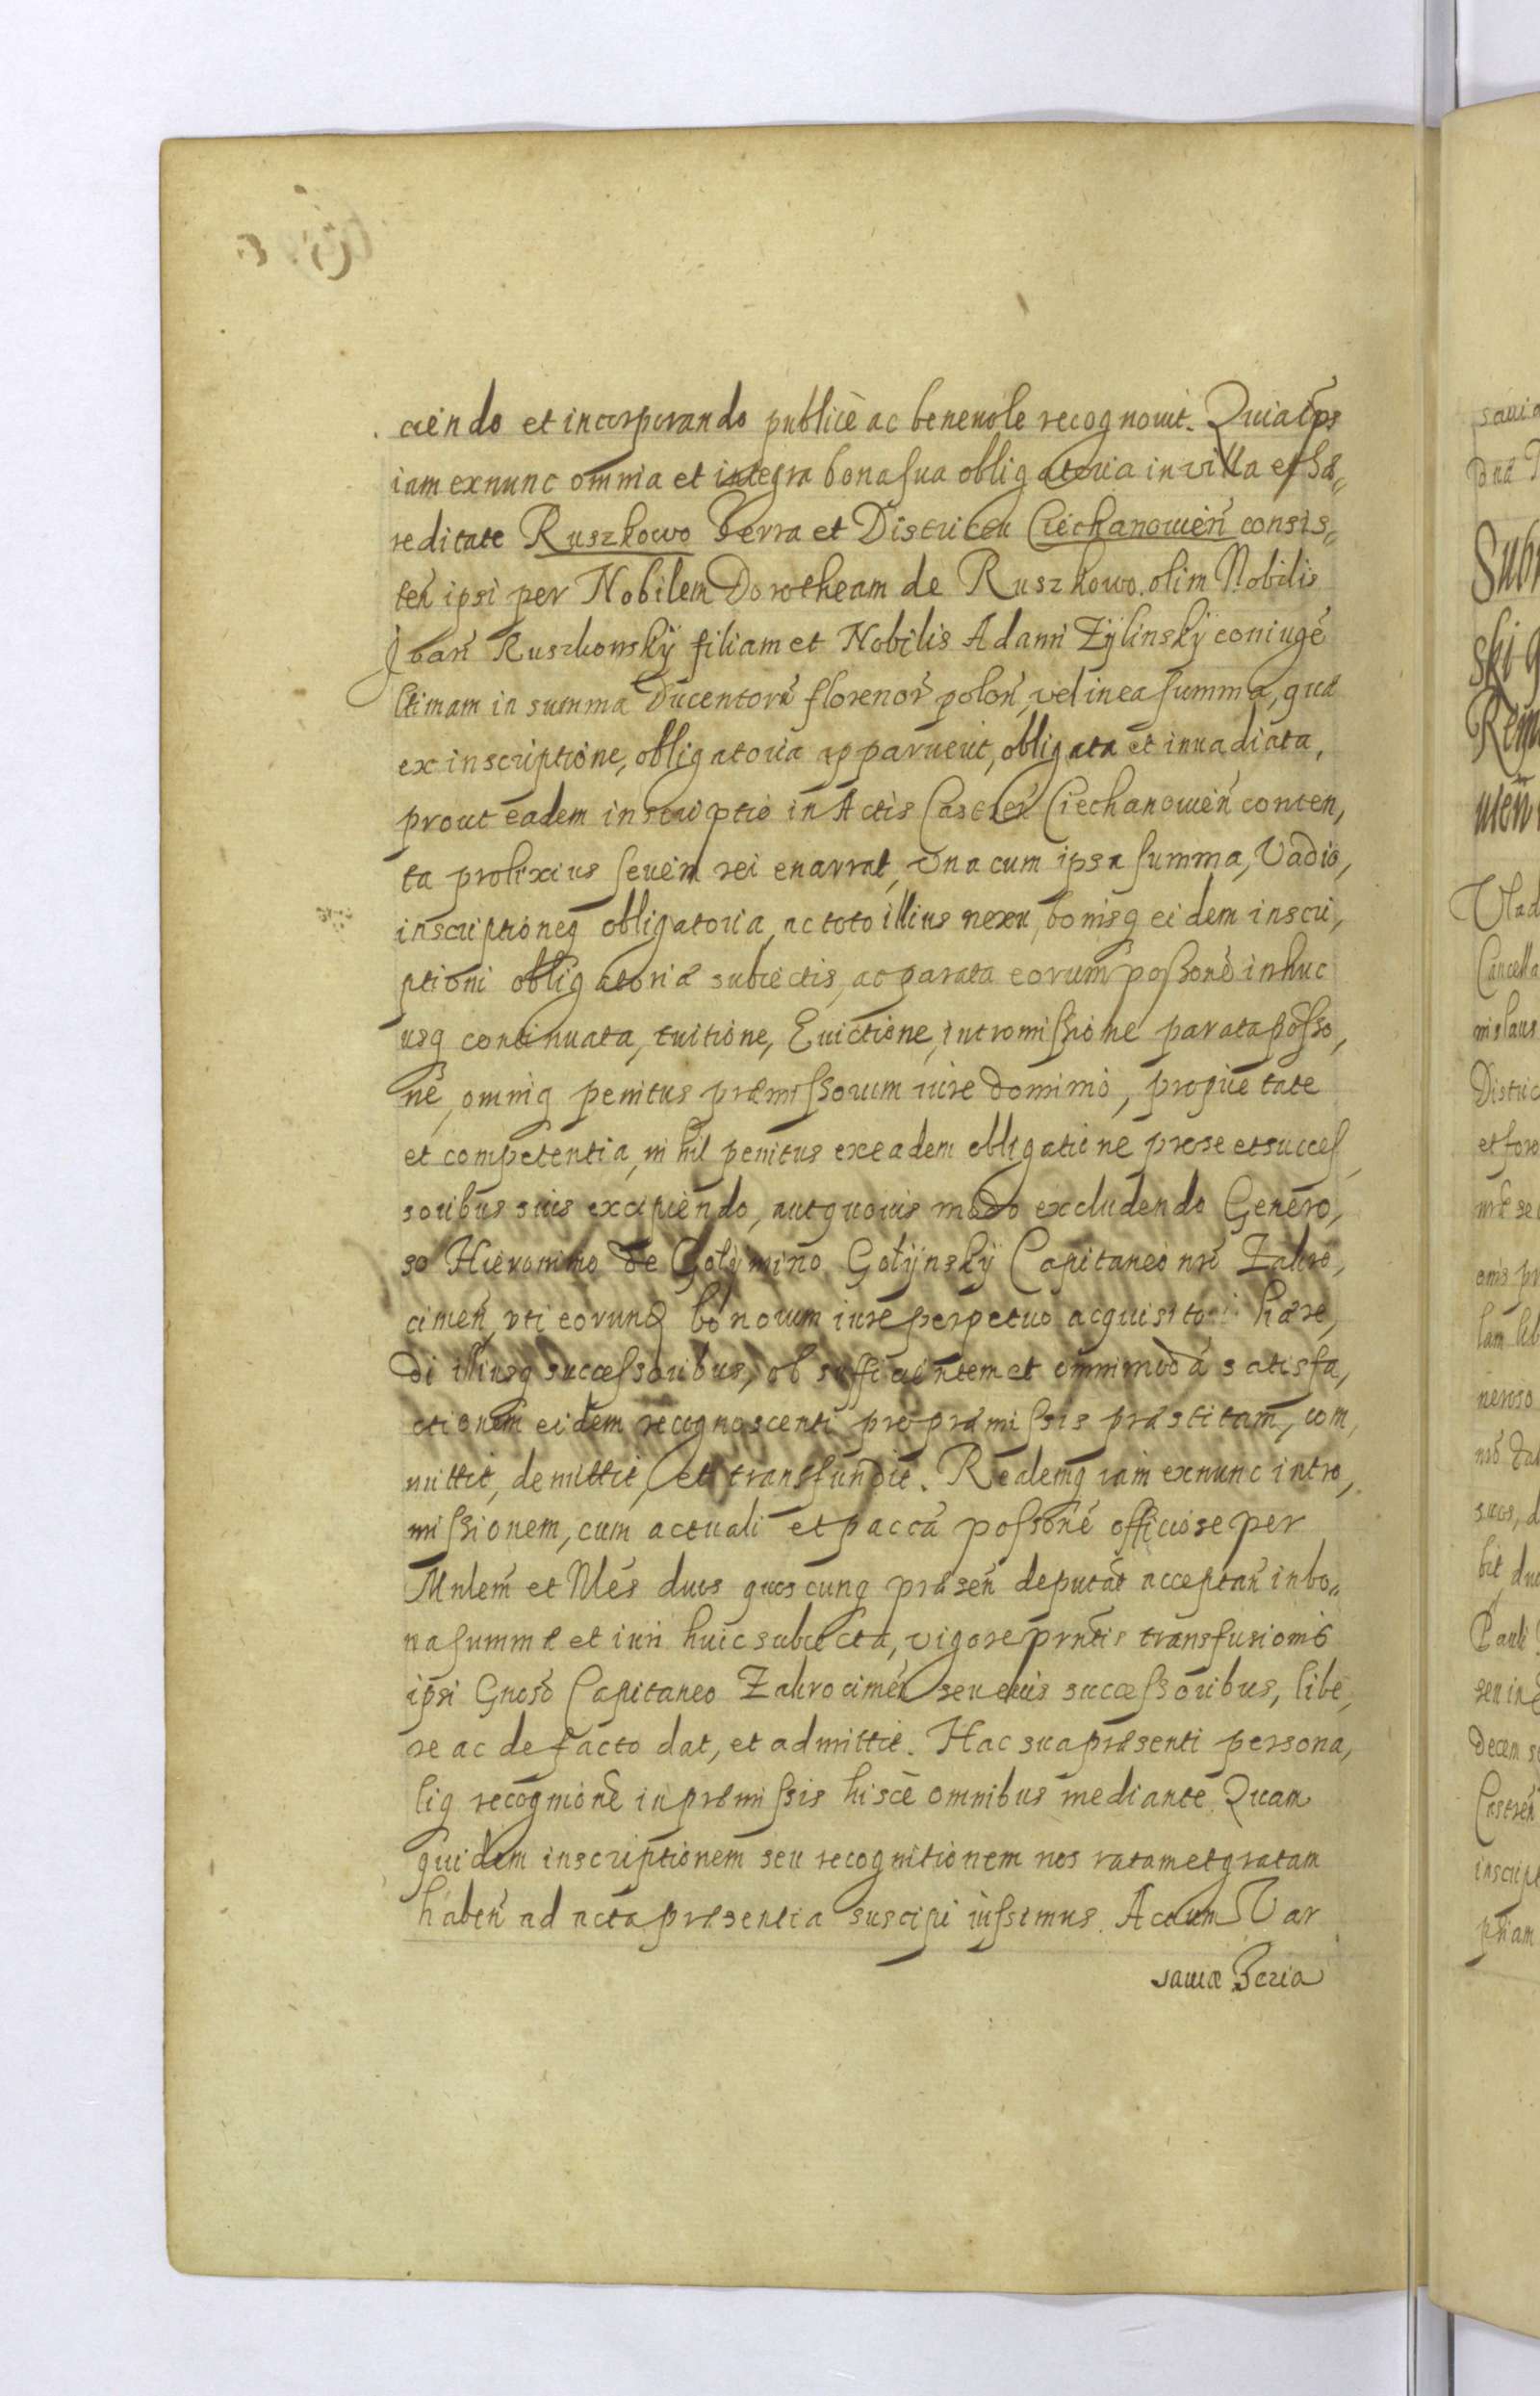 ciendo et incorporando publicè ac beneuole recognouit. Quia ips
iam exnunc omnia et integra bona sua obligatoria in villa et hæ„
reditate Ruszkowo Terra et Districtu Ciechanowień consis„
teń ipsi per Nobilem Dorotheam de Ruszkowo olim Nobilis
Joań Ruszkowskÿ filiam et Nobilis Adami Zÿlinskÿ coniugé
ltimam in summa Ducentorũ florenor̃ poloń, vel in ea summa, quæ
ex inscriptione, obligatoria apparuerit, obligata et inuadiata,
prout eadem inscriptio in Actis Castreń Ciechanowień conten,
ta prolixius seriem rei enarrat, Una cum ipsa summa, Vadio,
inscriptioneq obligatoria, ac toto illius nexu, bonisq eidem inscri,
ptioni obligatoriæ subiectis, ac parata eorum possonè inhuc
usq continuata, tuitione, Euictione, intromissione parata posso,
né, omniq penitus præmissorum iure dominio, proprietate
et competentia, nihil penitus ex eadem obligatione pro se et succes
soribus suis excipiendo, aut quouis modo excludendo Genero,
so Hieronimo de Golymino Golÿnskÿ Capitaneo nrõ Zakro,
cimeń, vti eorund bonorum iure perpetuo acquisito hære,
di illiusq successoribus, ob sufficientem et omnimodã satisfa,
ctionem eidem recognoscenti pro præmissis præstitam, com,
mittit, demittit, et transfundit. Realemq iam exnunc intro,
missionem, cum actuali et paccã possoné officiose per
Mnlem et Nlés duos quoscunq præseń deputát acceptań in bo„
na summæ et iuri huic subiecta, vigore prntis transfusionis
ipsi Gnoso Capitaneo Zakrocimeń seu eius successoribus, libe,
re ac de facto dat, et admittit. Hac sua præsenti persona,
liq recognitione in præmissis hisce omnibus mediante. Quam
quidem inscriptionem seu recognitionem nos ratam et gratam
habeń ad acta præsentia suscipi iussimus. Actum Var
sauiæ Feria